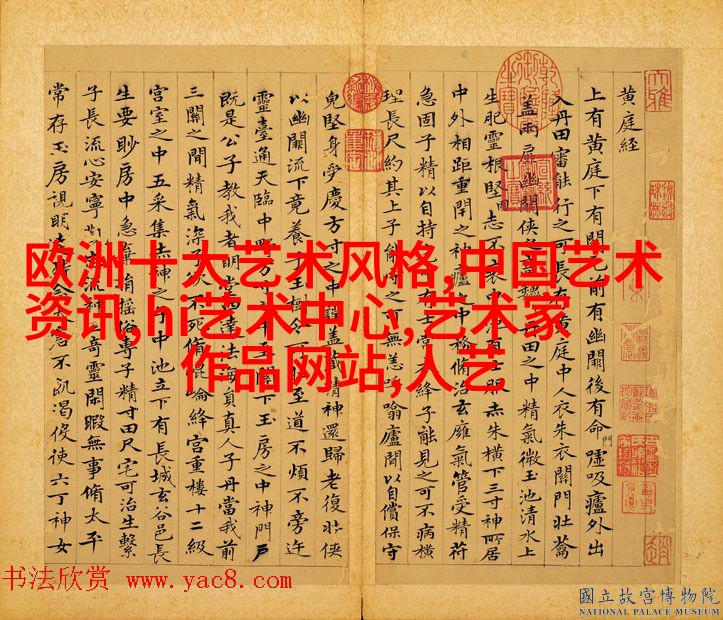 黄庭経
上有黄庭下有關元前有幽闕後有命門噓吸廬外出
入丹田審能行之可長存黄庭中人衣朱衣關門壯蘥
蓋兩扉幽闕俠之高巍巍丹田之中精氣微玉池清水上
生肥靈根堅志不衰中池有士服赤朱横下三寸神所居
中外相距重閇之神廬之中務脩治玄廱氣管受精符
急固子精以自持
理長尺約其上子能
以自償保守
兔堅身爭慶方寸之中謹蓋藏精神還歸老復壯俠
以幽闕流下竟養子玉樹
至道不煩不旁迕
靈臺通天臨中野方寸之中至關下玉房之中神門戶
既是公子教我者明堂四達法海員真人子丹當我前
三關之間精氣深子欲不死脩崐崘絳宮重樓十二級
宮室之中五采集赤神之子中池立下有長城玄谷邑長
生要眇房中急棄捐搖俗專子精寸田尺宅可治生繫
子長流心安寧
流神奇靈閇暇無事脩太平
常存玉房視明達
不飢渴使六丁神女
欧洲十大艺术风格,中国艺术
资讯,hi艺术中心,艺术家
作品网站,人艺
书法欣赏 www.yac8.com
國立故宮博物院
NATIONAL PALACE MUSEUM